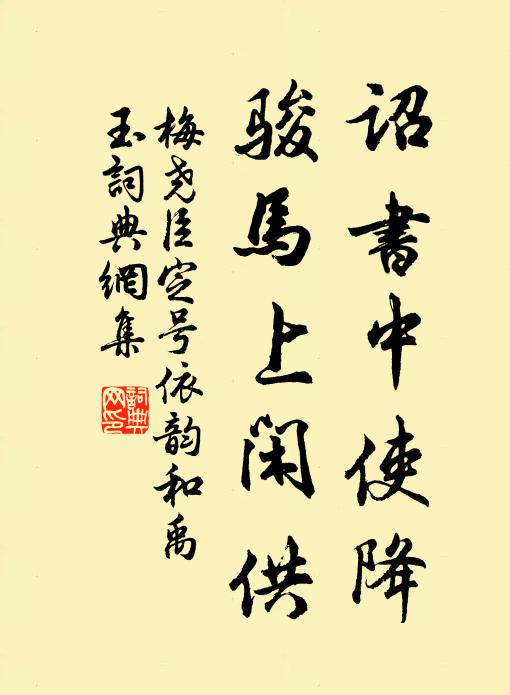 詔書中使降
駿馬上閑供
梅尧臣定号依韵和禹
玉詞典網集
詞典
网印